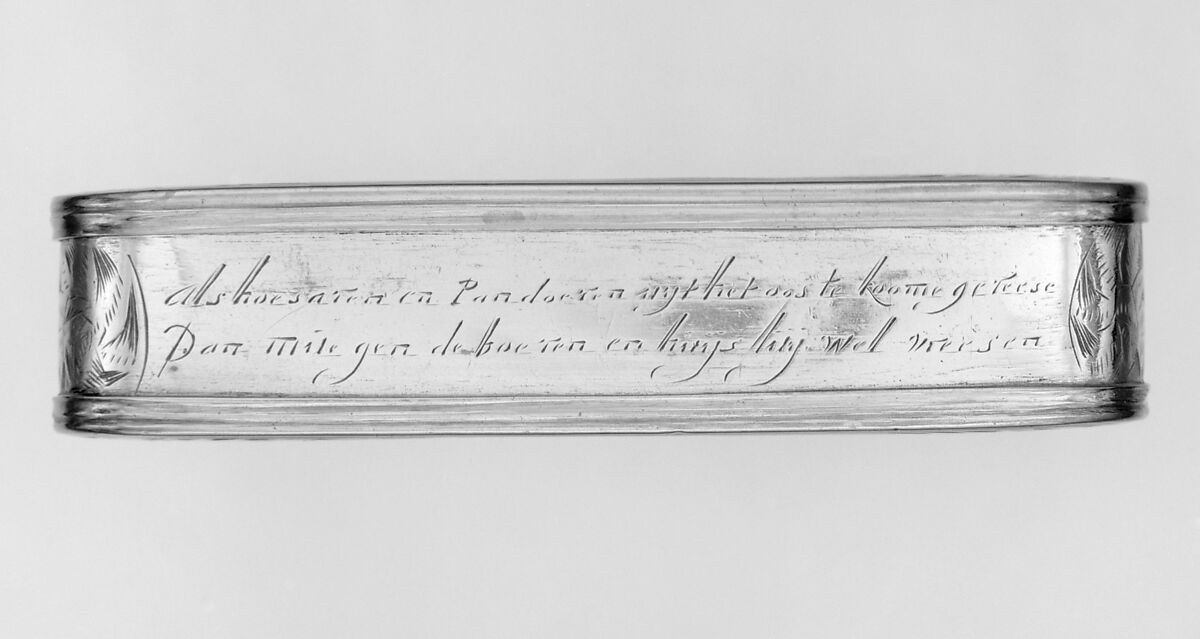 Als hoesaren en Pandoeren uyt het ooste koome gereese
Dan mite gen de boeren en huys luy wel vreesen